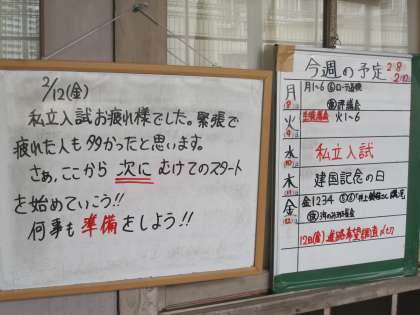 2/12(金)
私立入試お疲れ様でした。緊張で
疲れた人も多かったと思います。
さぁ、ここから 次に むけてのスタート
を始めていこう!!
何事も準備をしよう!!
今週の予定 2/8
月 月1~6
8
火 火1~4
9
水 私立入試
10
木 建国記念の日
11
金 金1234 ⑤⑥
12
12日(金) 進路希望調査〆切